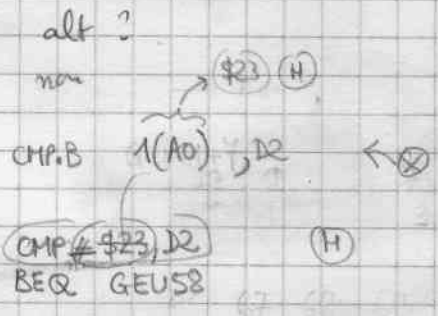 alt ?
non $23 H
CMP.B 1(A0) , D2
CMP # $23, D2 H
BEQ GEU58